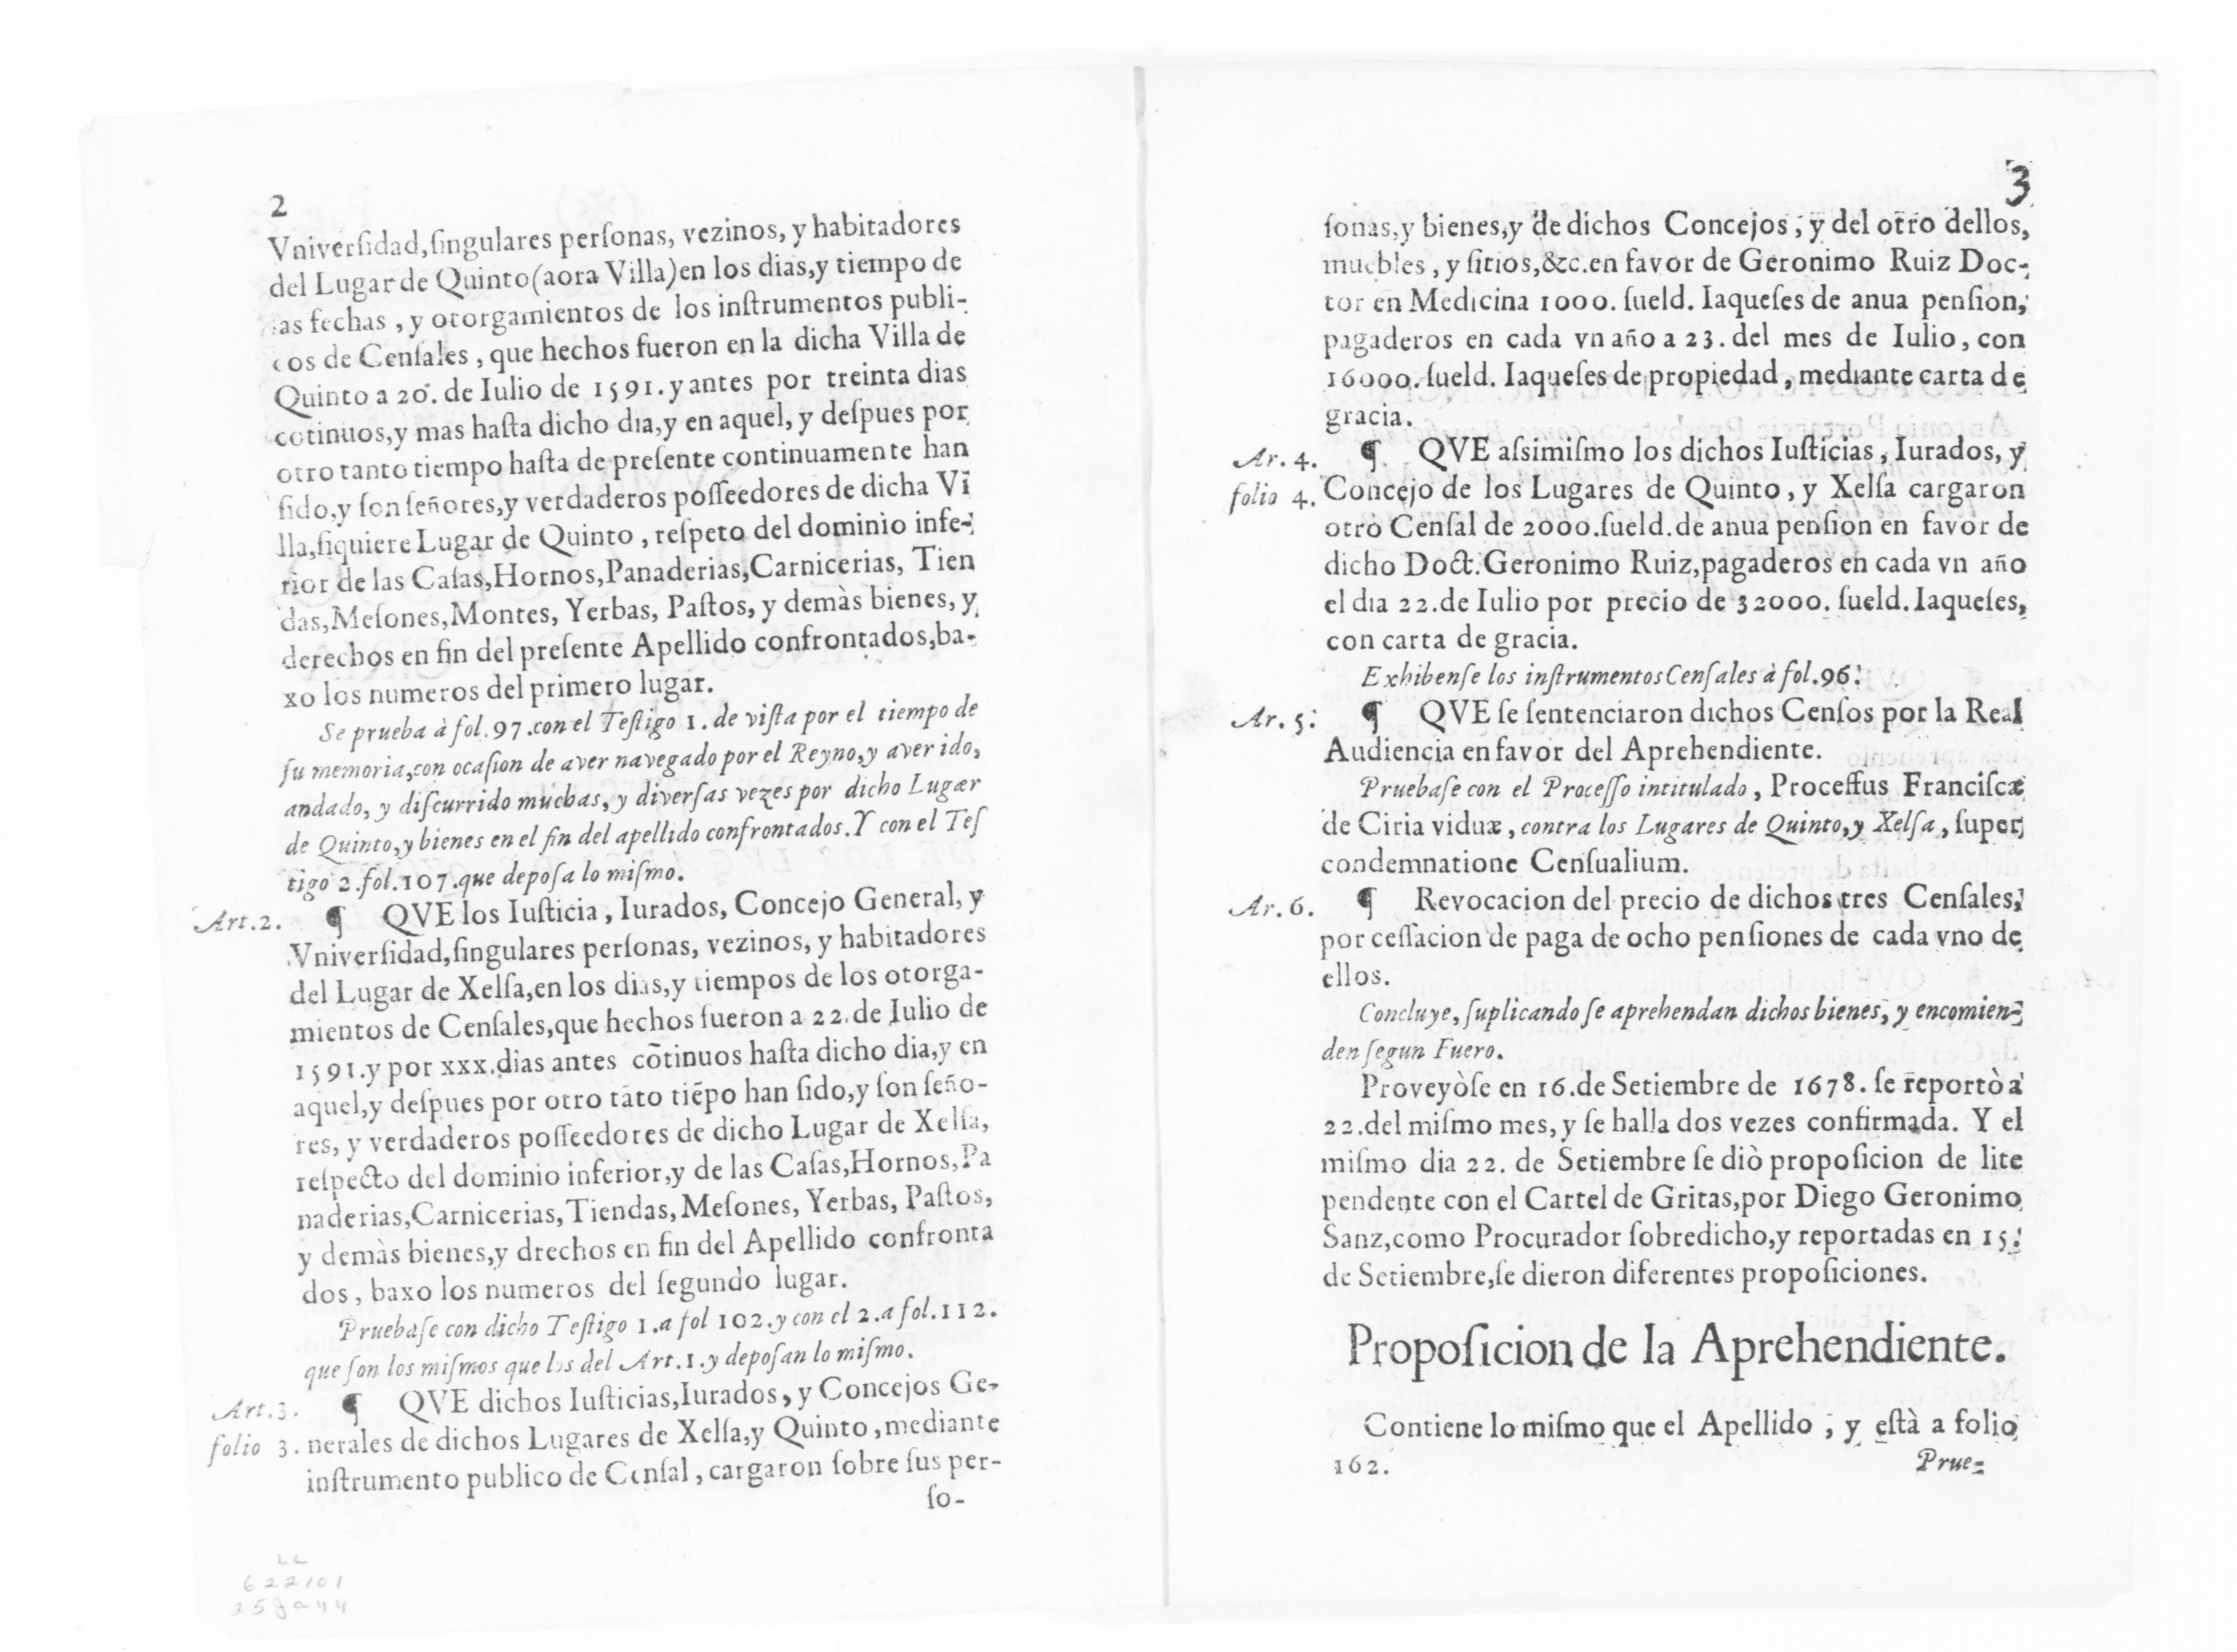 2
Vniversidad,singulares personas, vezinos, y habitadores
del Lugar de Quinto(aora Villa)en los dias,y tiempo de
las fechas , y otorgamientos de los instrumentos publi-
cos de Censales , que hechos fueron en la dicha Villa de
Quinto a 20. de Iulio de 1591. y antes por treinta dias
cotinuos,y mas hasta dicho dia,y en aquel, y despues por
otro tanto tiempo hasta de presente continuamente han
sido,y son señores,y verdaderos posseedores de dicha Vi
lla,siquiere Lugar de Quinto , respeto del dominio infe-
rior de las Casas,Hornos,Panaderias,Carnicerias, Tien
das,Mesones,Montes, Yerbas, Pastos, y demàs bienes, y
derechos en fin del presente Apellido confrontados,ba-
xo los numeros del primero lugar.
Se prueba à fol.97.con el Testigo 1. de vista por el tiempo de
su memoria,con ocasion de aver navegado por el Reyno,y aver ido,
andado, y discurrido muchas, y diversas vezes por dicho Lugar
de Quinto,y bienes en el fin del apellido confrontados.Y con el Tes
tigo 2.fol.107.que deposa lo mismo.
Art.2. ¶ QVE los Iusticia, Iurados, Concejo General, y
Vniversidad,singulares personas, vezinos, y habitadores
del Lugar de Xelsa,en los dias,y tiempos de los otorga-
mientos de Censales,que hechos fueron a 22.de Iulio de
1591.y por xxx.dias antes cõtinuos hasta dicho dia,y en
aquel,y despues por otro tãto tiẽpo han sido,y son seño-
res, y verdaderos posseedores de dicho Lugar de Xelsa,
respecto del dominio inferior,y de las Casas,Hornos,Pa
naderias,Carnicerias,Tiendas,Mesones, Yerbas, Pastos,
y demàs bienes,y drechos en fin del Apellido confronta
dos , baxo los numeros del segundo lugar.
Pruebase con dicho Testigo 1.a fol 102.y con el 2.a fol.112.
que son los mismos que los del Art.1.y deposan lo mismo.
Art.3. ¶ QVE dichos Iusticias,Iurados, y Concejos Ge-
folio 3. nerales de dichos Lugares de Xelsa,y Quinto , mediante
instrumento publico de Censal , cargaron sobre sus per-
so-
LL
622101
25ga44
3
sonas,y bienes,y de dichos Concejos, y del otro dellos,
muebles , y sitios,&c.en favor de Geronimo Ruiz Doc-
tor en Medicina 1000. sueld. Iaqueses de anua pension,
pagaderos en cada vn año a 23. del mes de Iulio , con
16000.sueld. Iaqueses de propiedad , mediante carta de
gracia.
Ar. 4. ¶ QVE assimismo los dichos Iusticias , Iurados, y
folio 4. Concejo de los Lugares de Quinto , y Xelsa cargaron
otro Censal de 2000.sueld.de anua pension en favor de
dicho Doct.Geronimo Ruiz,pagaderos en cada vn año
el dia 22.de Iulio por precio de 32000. sueld.Iaqueses,
con carta de gracia.
Exhibense los instrumentos Censales à fol.96.
Ar. 5. ¶ QVE se sentenciaron dichos Censos por la Real
Audiencia en favor del Aprehendiente.
Pruebase con el Processo intitulado , Processus Franciscæ
de Ciria viduæ , contra los Lugares de Quinto,y Xelsa , super
condemnatione Censualium.
Ar. 6. ¶ Revocacion del precio de dichos tres Censales,
por cessacion de paga de ocho pensiones de cada vno de
ellos.
Concluye, suplicando se aprehendan dichos bienes, y encomien-
den segun Fuero.
Proveyòse en 16.de Setiembre de 1678. se reportò a
22.del mismo mes, y se halla dos vezes confirmada. Y el
mismo dia 22. de Setiembre se diò proposicion de lite
pendente con el Cartel de Gritas,por Diego Geronimo
Sanz,como Procurador sobredicho,y reportadas en 15.
de Setiembre,se dieron diferentes proposiciones.
Proposicion de la Aprehendiente.
Contiene lo mismo que el Apellido , y està a folio
162.
Prue-